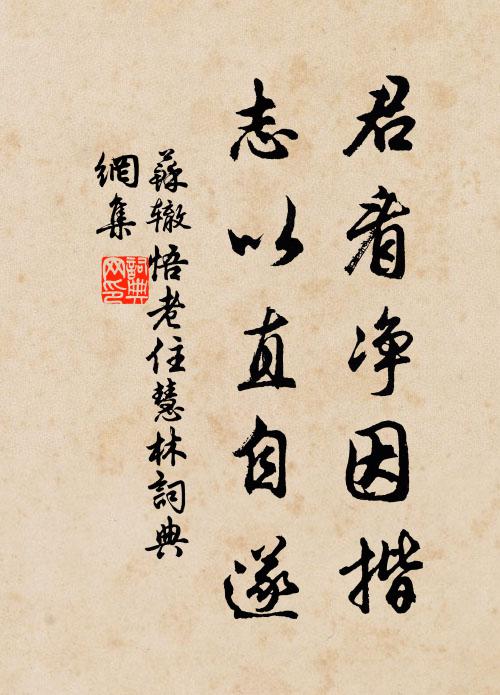 君看净因揩
志以直自遂
蘇辙悟老住慧林詞典
網集
詞典
网印